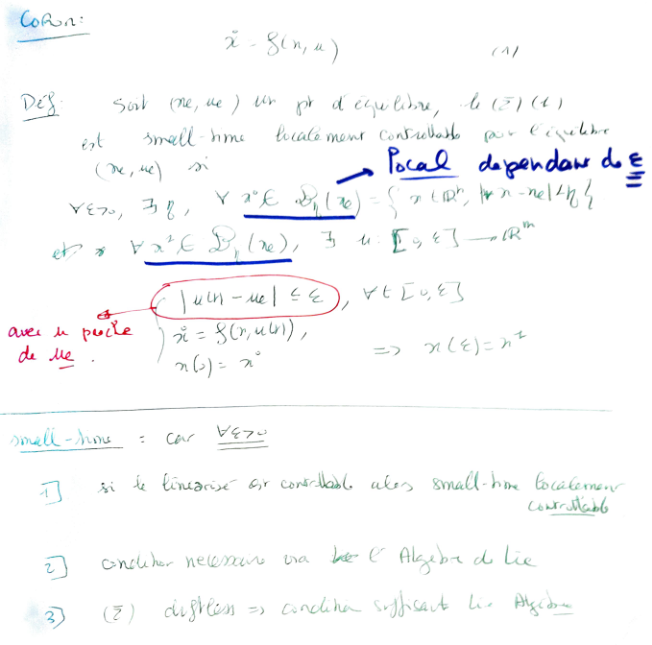 Coron:
ẋ = f(x,u) (1)
Déf: Soit (xe, ue) un pt d'équilibre, le (Σ) (1)
est small-time localement controllable pour l'équilibre
(xe, ue) si
→ local dependant de ε
∀ε>0, ∃ η, ∀ x⁰ ∈ B_η(xe) = { x ∈ ℝⁿ, |x - xe| < η }
et ∀ x¹ ∈ B_η(xe), ∃ u: [0,ε] → ℝᵐ
|u(t) - ue| ≤ ε, ∀ t ∈ [0,ε]
avec u proche
de ue.
ẋ = f(x,u(t)),
x(0) = x⁰ => x(ε) = x¹
small-time = car ∀ε>0
1] si le linearisé est controllable alors small-time localement
controllable
2] condition necessaire via l'Algebre de Lie
3] (Σ) driftless => condition suffisante Lie Algebre